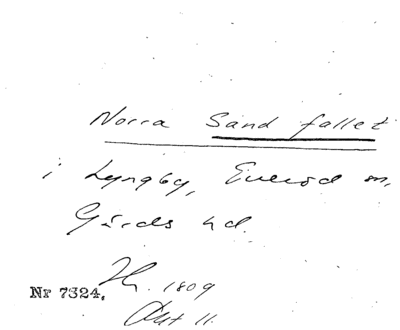 Norra Sand fallet
i Lyngby, Everöd sn,
Gärds hd.
Hr. 1809
Nr 7324.
Akt 11.